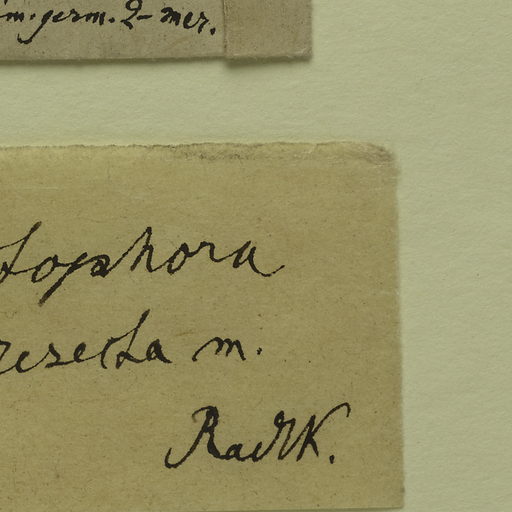 m. germ. 2-mer.
tophora
resecta m.
Radtk.